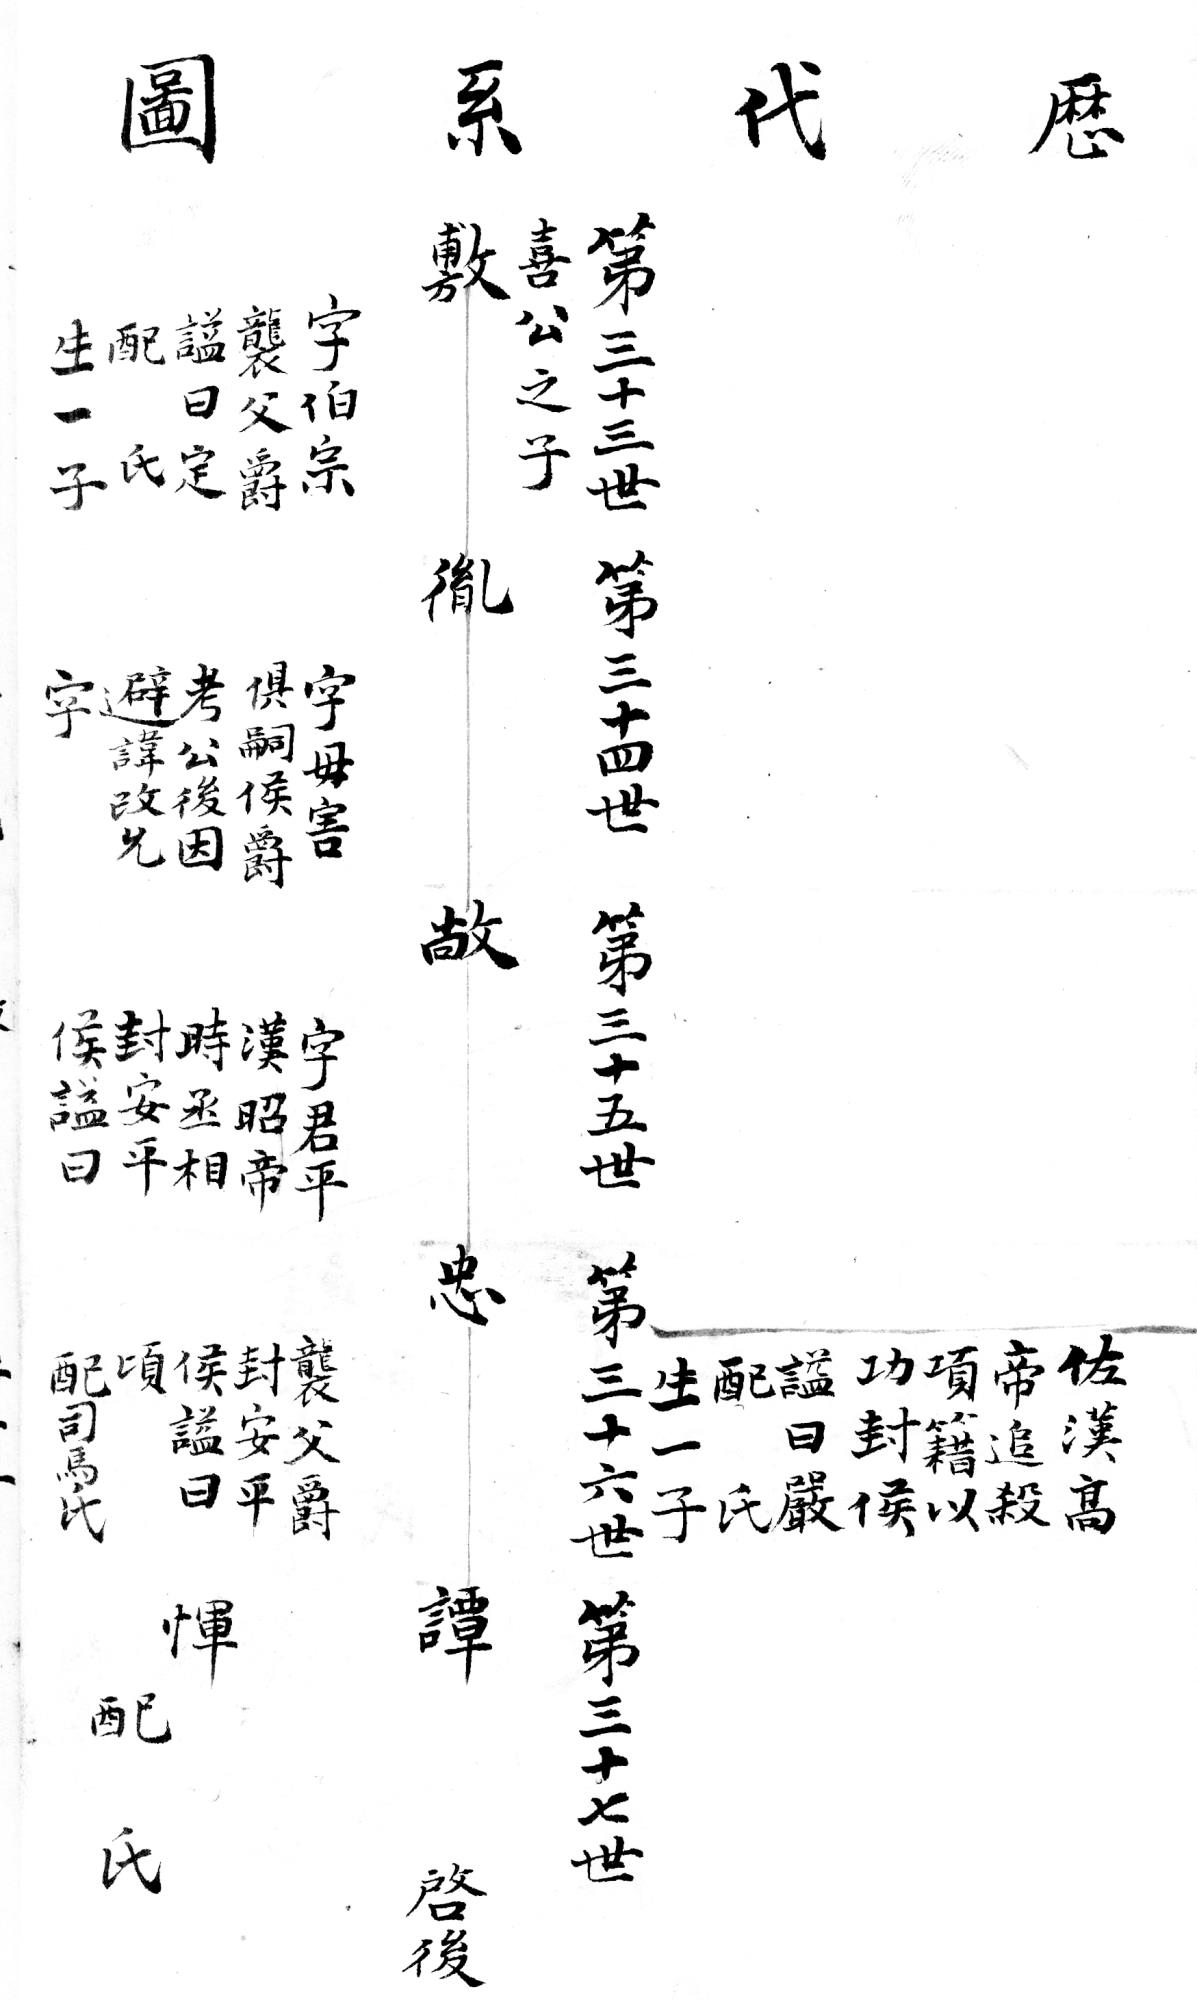 歴代系圖
佐漢高
帝追殺
項籍以
功封侯
謚曰嚴
配 氏
生一子
第三十三世
喜公之子
敷
字伯宗
襲父爵
謚曰定
配 氏
生一子
第三十四世
胤
字毋害
俱嗣侯爵
考公後因
避諱改允
字
第三十五世
敞
字君平
漢昭帝
時丞相
封安平
侯謚曰
第三十六世
忠
襲父爵
封安平
侯謚曰
頃
配司馬氏
第三十七世
譚
啓後
惲
配 氏